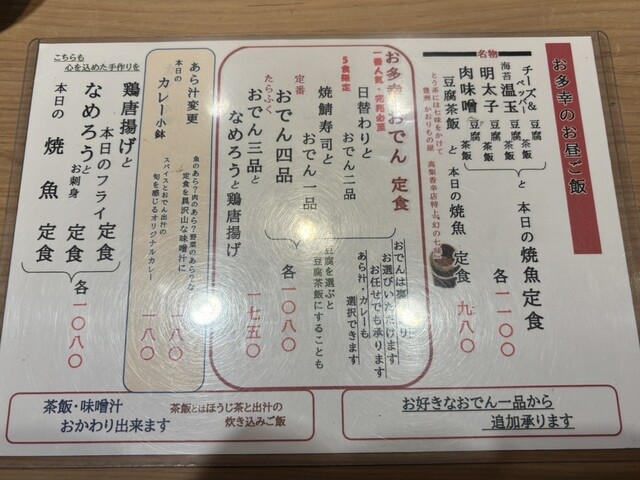 お多幸のお昼ご飯
名物
チーズ&ペッパー 豆腐茶飯
海苔温玉 豆腐茶飯
明太子 豆腐茶飯
肉味噌 豆腐茶飯
と 本日の焼魚定食
各一一〇〇
豆腐茶飯 と 本日の焼魚 定食
九八〇
とう茶には七味をかけて
お多幸おでん 定食
一番人気・完売必至
5食限定
日替わりと おでん二品
焼鯖寿司と おでん一品
定番 おでん四品
各一〇八〇
たらふく おでん三品と
なめろうと鶏唐揚げ
一七五〇
お選びいただけます
お任せでも承ります
あら汁・カレーも
選択できます
豆腐を選ぶと
豆腐茶飯にすることも
あら汁変更
魚のあら?肉のあら?野菜のあら?な
定食を具沢山な味噌汁に
一八〇
本日の カレー小鉢
スパイスとおでん出汁の
旬を感じるオリジナルカレー
一八〇
こちらも
心を込めた手作りを
鶏唐揚げと 本日のフライ 定食
なめろうと お刺身 定食
本日の 焼魚 定食
各一〇八〇
お好きなおでん一品から
追加承ります
茶飯とはほうじ茶と出汁の
炊き込みご飯
茶飯・味噌汁
おかわり出来ます